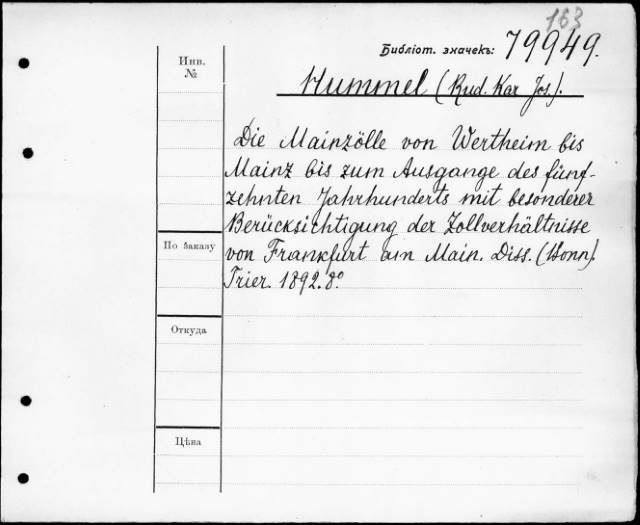 163
Инв.
№
Библіот. значекъ: 79949.
Hummel (Rud. Kar Jos.).
Die Mainzölle von Wertheim bis
Mainz bis zum Ausgange des fünf-
zehnten Jahrhunderts mit besonderer
Berücksichtigung der Zollverhältnisse
von Frankfurt am Main. Diss. (Bonn).
Trier. 1892. 8º.
По заказу
Откуда
Цѣна